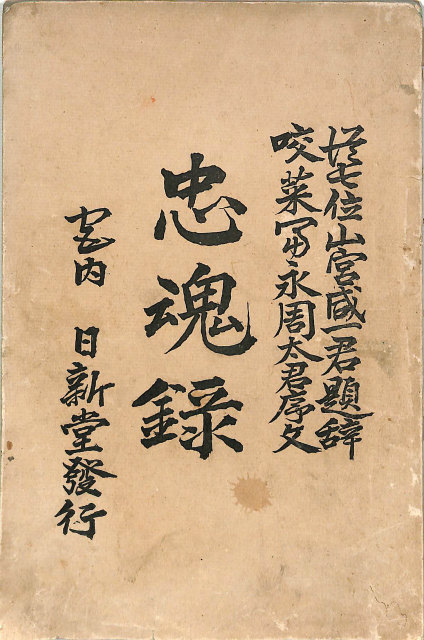 従七位山宮咸一君題辞
咬菜冨永周太君序文
忠魂録
宮内 日新堂發行